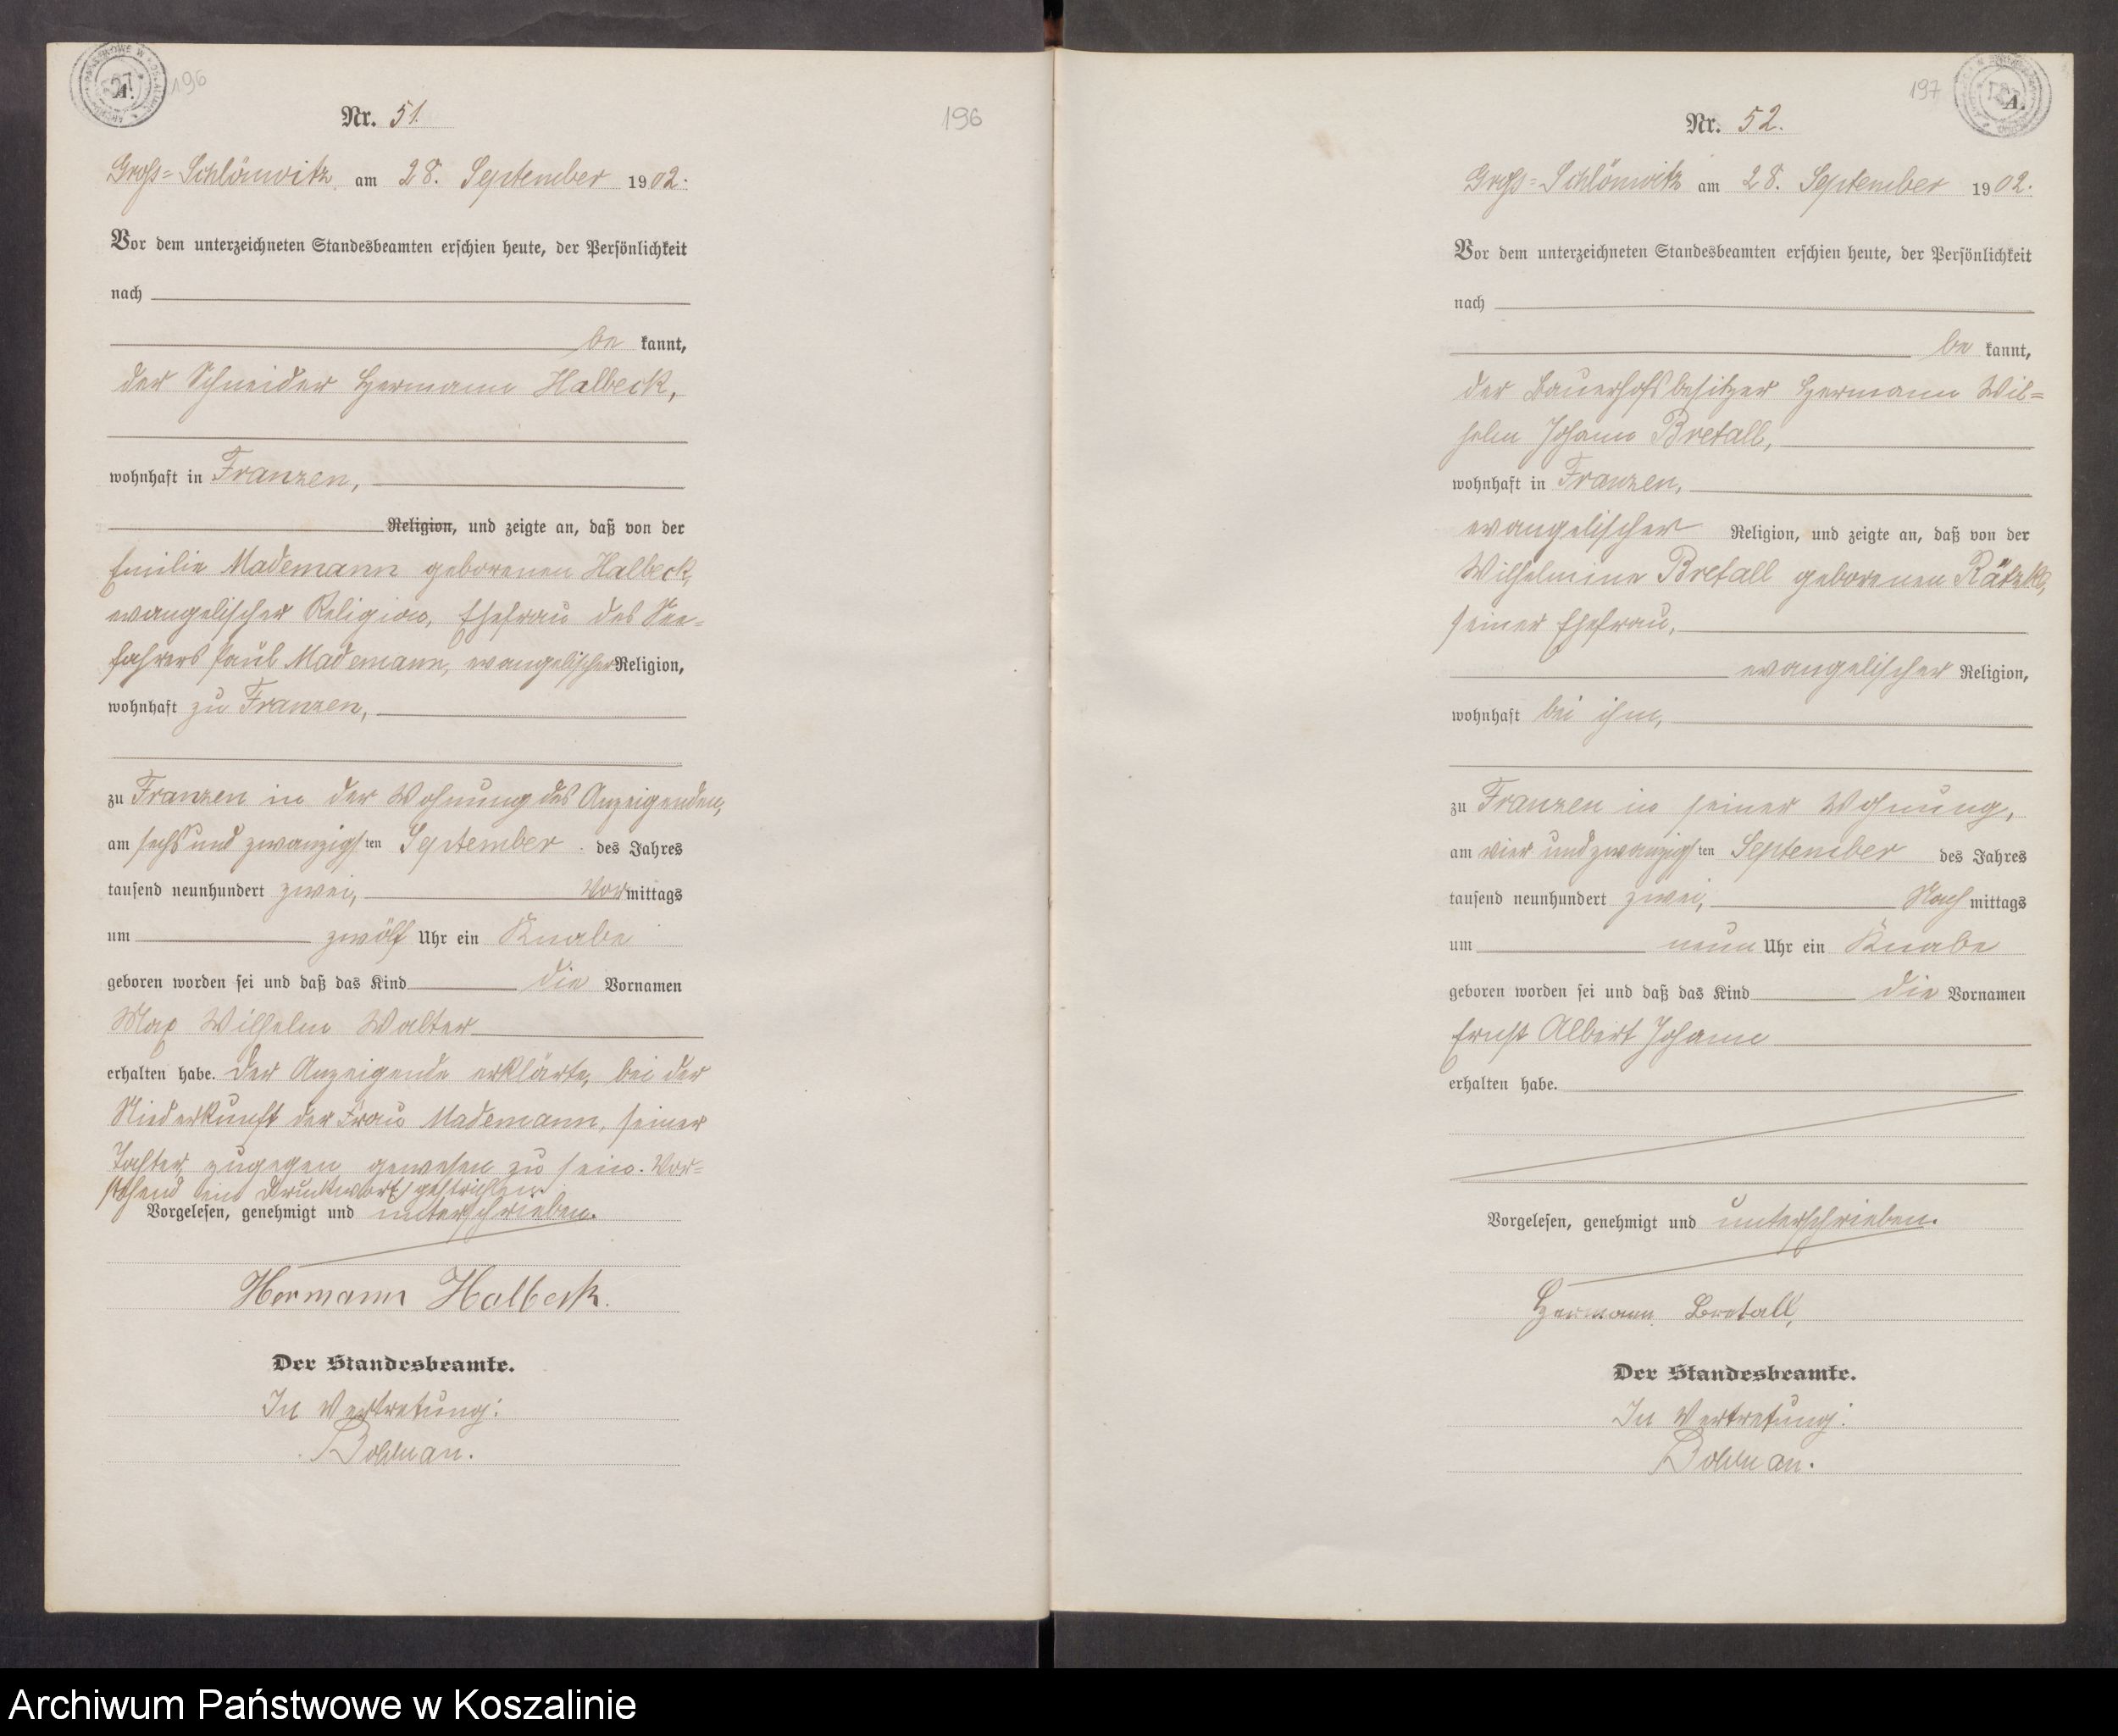 196
Nr. 51.
Groß-Schlönwitz am 28. September 1902.
Vor dem unterzeichneten Standesbeamten erschien heute, der Persönlichkeit
nach
be kannt,
der Schneider Hermann Halbeck,
wohnhaft in Franzen,
Religion, und zeigte an, daß von der
Emilie Mademann geborenen Halbeck,
evangelischer Religion, Ehefrau des See-
fahrers Paul Mademann, evangelischer Religion,
wohnhaft zu Franzen,
zu Franzen in der Wohnung des Anzeigenden,
am sechs und zwanzigsten September des Jahres
tausend neunhundert zwei, Vormittags
um zwölf Uhr ein Knabe
geboren worden sei und daß das Kind die Vornamen
Max Wilhelm Walter
erhalten habe. Der Anzeigende erklärte, bei der
Niederkunft der Frau Mademann, seiner
Tochter, zugegen gewesen zu sein. Vor-
stehend ein Druckwort gestrichen.
Vorgelesen, genehmigt und unterschrieben.
Hermann Halbeck.
Der Standesbeamte.
In Vertretung:
196
197
Nr. 52.
Groß-Schlönwitz am 28. September 1902.
Vor dem unterzeichneten Standesbeamten erschien heute, der Persönlichkeit
nach
be kannt,
der Bauerhofsbesitzer Hermann Wil=
helm Johann Bretall,
wohnhaft in Franzen,
evangelischer Religion, und zeigte an, daß von der
Wilhelmine Bretall geborenen Rätzke,
seiner Ehefrau,
evangelischer Religion,
wohnhaft bei ihm,
zu Franzen in seiner Wohnung,
am vier und zwanzigsten September des Jahres
tausend neunhundert zwei, Nachmittags
um neun Uhr ein Knabe
geboren worden sei und daß das Kind die Vornamen
Ernst Albert Johann
erhalten habe.
Vorgelesen, genehmigt und unterschrieben.
Hermann Bretall,
Der Standesbeamte.
In Vertretung:
Archiwum Państwowe w Koszalinie